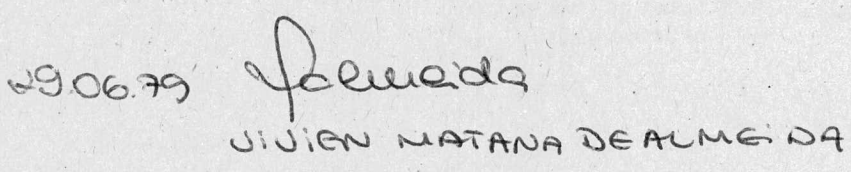 29.06.79 Valmeida
VIVIEN MATANA DE ALMEIDA